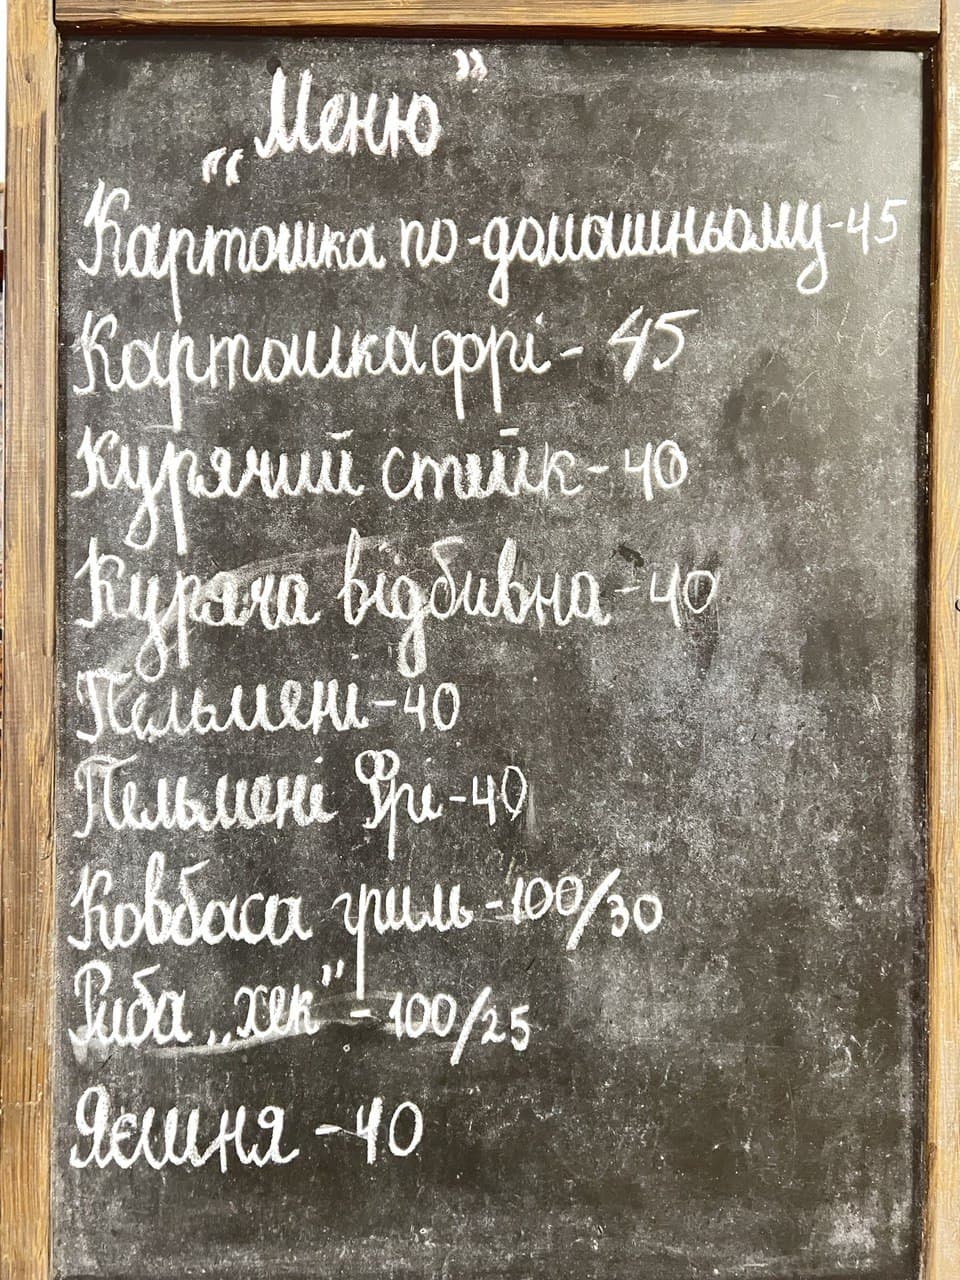 „Меню"
Картошка по-домашньому-45
Картошка фрі - 45
Курячий стейк - 40
Куряча відбивна - 40
Пельмені - 40
Пельмені Фрі - 40
Ковбаса гриль - 100/30
Риба „хек" - 100/25
Яєшня - 40